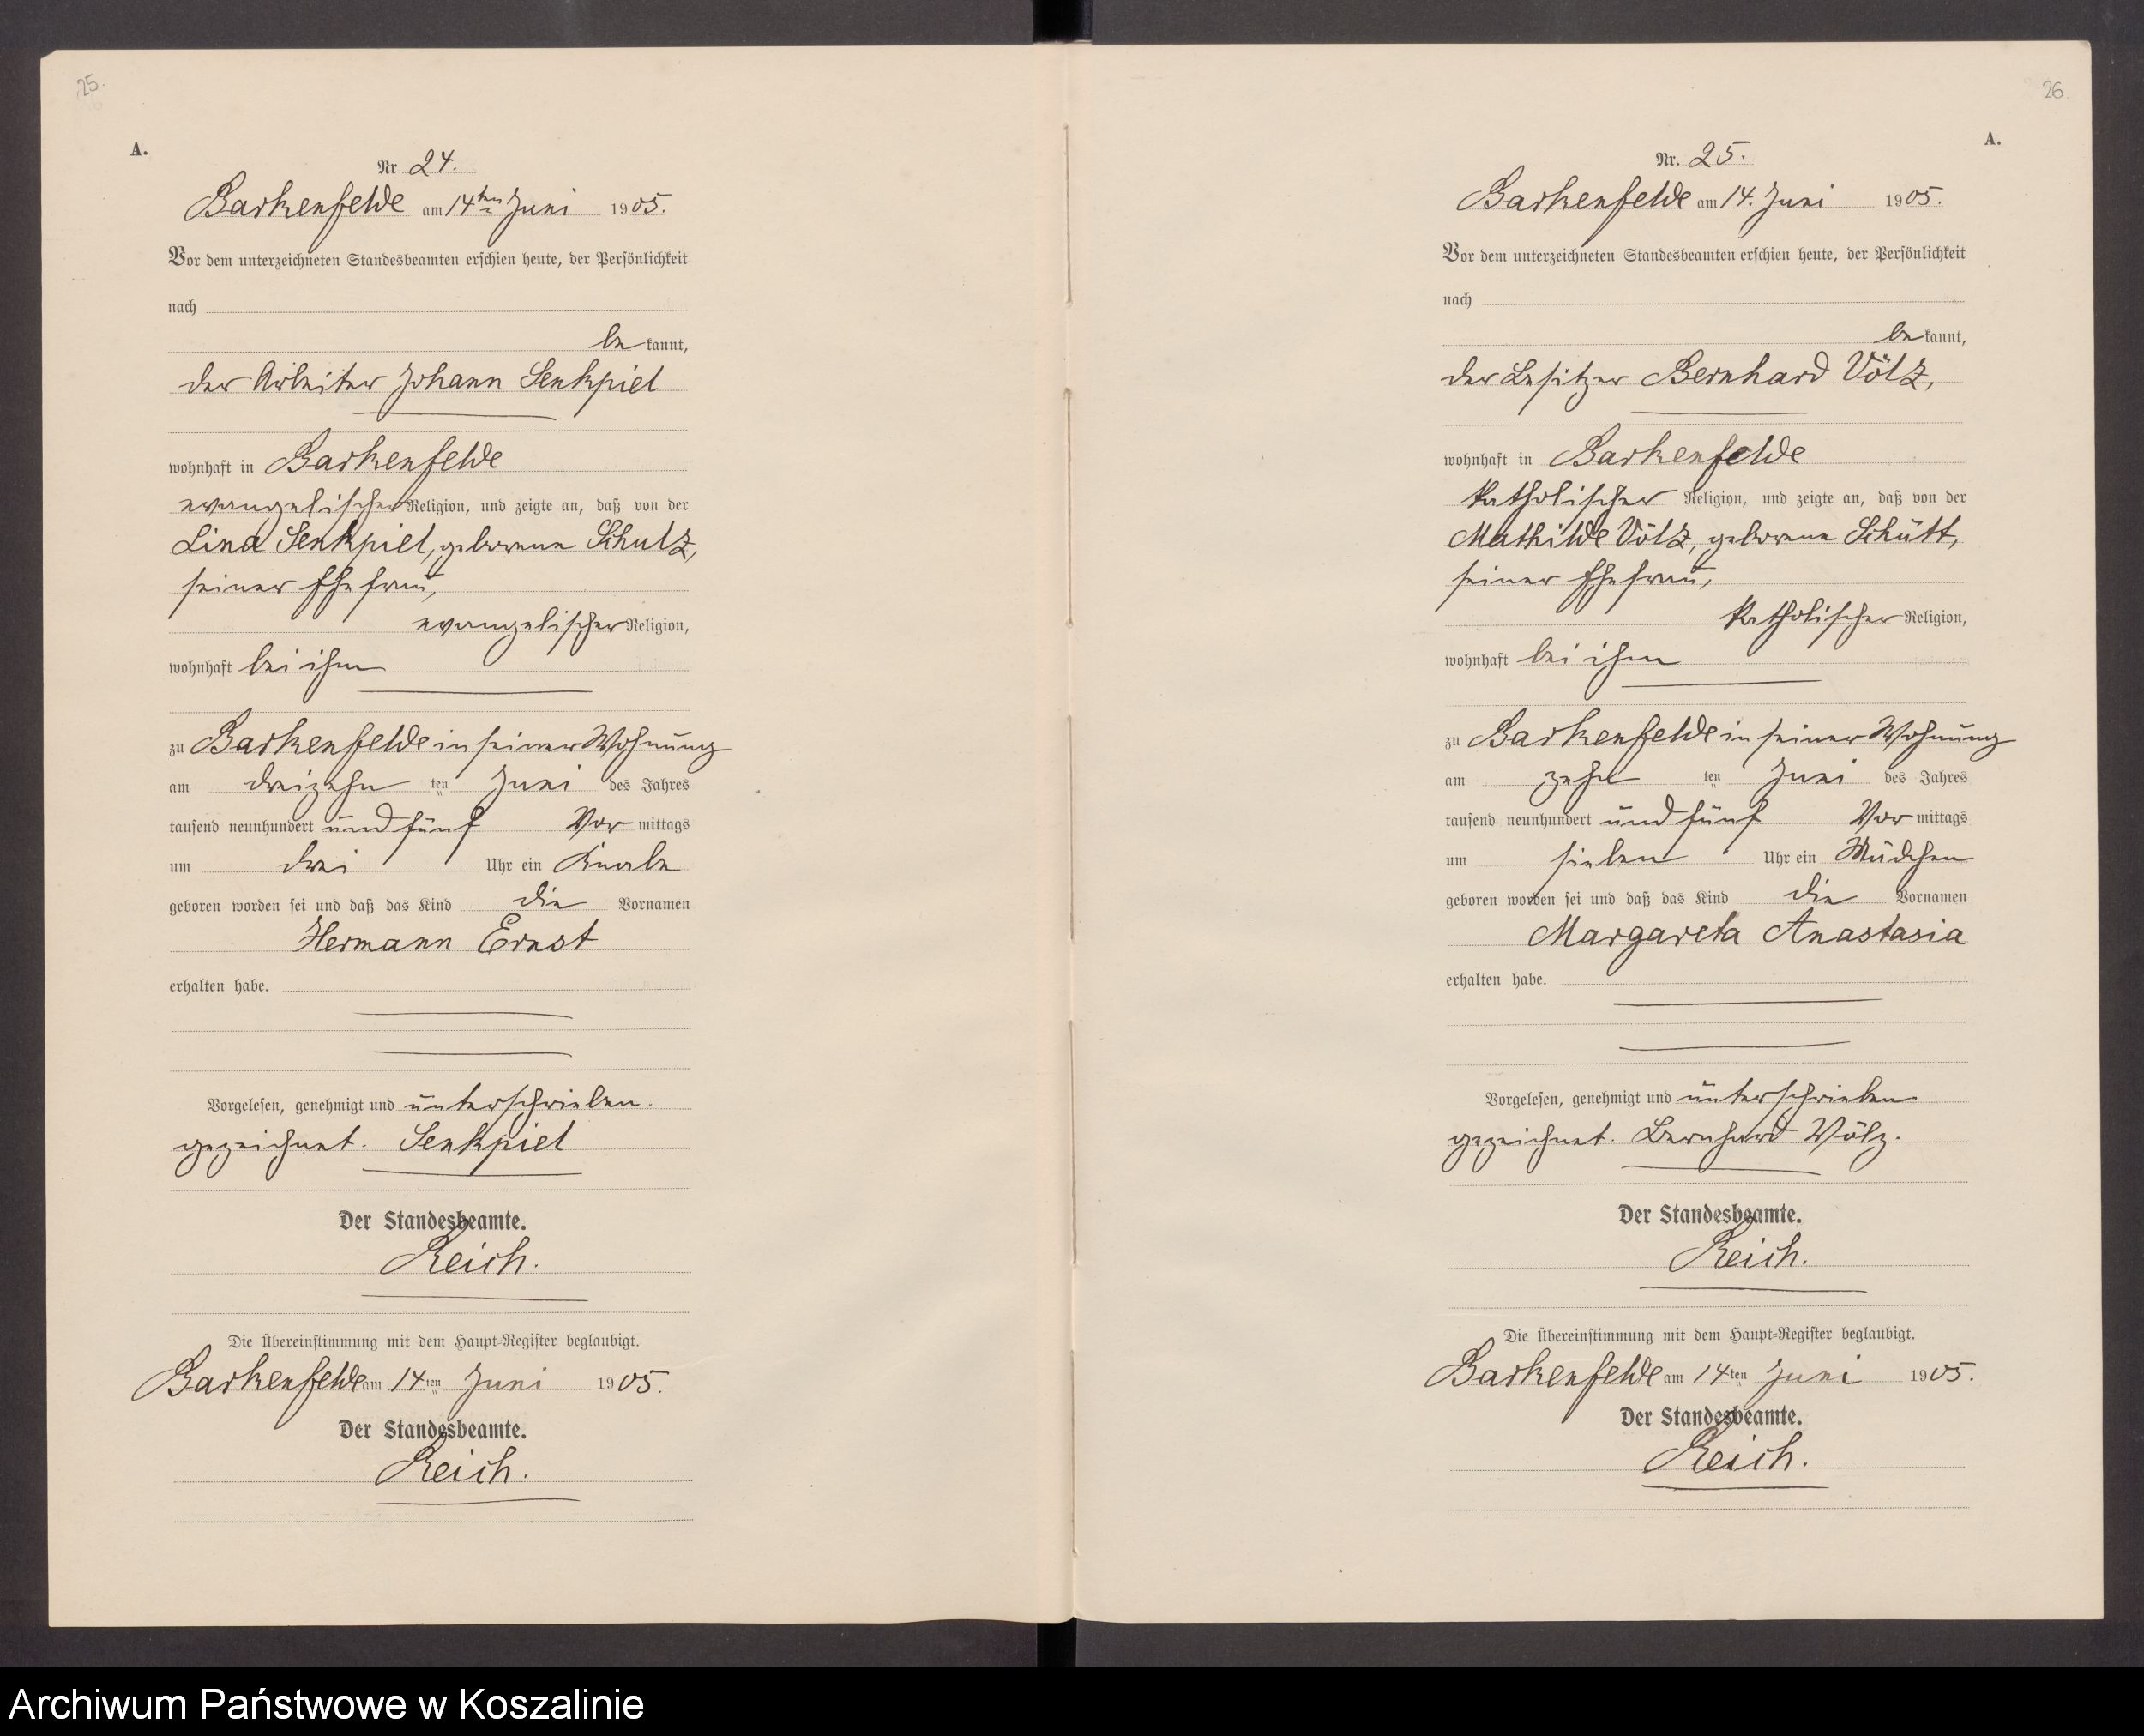 25.
A.
Nr 24.
Barkenfelde am 14ten Juni 1905.
Vor dem unterzeichneten Standesbeamten erschien heute, der Persönlichkeit
nach
be kannt,
der Arbeiter Johann Senkpiel
wohnhaft in Barkenfelde
evangelischer Religion, und zeigte an, daß von der
Lina Senkpiel, geborene Schulz,
seiner Ehefrau,
evangelischer Religion,
wohnhaft bei ihm
zu Barkenfelde in seiner Wohnung
am dreizehn ten Juni des Jahres
tausend neunhundert und fünf Vor mittags
um drei Uhr ein Knabe
geboren worden sei und daß das Kind die Vornamen
Hermann Ernst
erhalten habe.
Vorgelesen, genehmigt und unterschrieben.
gezeichnet. Senkpiel
Der Standesbeamte.
Reich.
Die Übereinstimmung mit dem Haupt-Register beglaubigt.
Barkenfelde am 14ten Juni 1905.
Der Standesbeamte.
Reich.
26.
A.
Nr. 25.
Barkenfelde am 14. Juni 1905.
Vor dem unterzeichneten Standesbeamten erschien heute, der Persönlichkeit
nach
be kannt,
der Besitzer Bernhard Völz,
wohnhaft in Barkenfelde
katholischer Religion, und zeigte an, daß von der
Mathilde Völz, geborene Schütt,
seiner Ehefrau,
katholischer Religion,
wohnhaft bei ihm
zu Barkenfelde in seiner Wohnung
am zehn ten Juni des Jahres
tausend neunhundert und fünf Vor mittags
um sieben Uhr ein Mädchen
geboren worden sei und daß das Kind die Vornamen
Margareta Anastasia
erhalten habe.
Vorgelesen, genehmigt und unterschrieben
gezeichnet. Bernhard Völz.
Der Standesbeamte.
Reich.
Die Übereinstimmung mit dem Haupt-Register beglaubigt.
Barkenfelde am 14ten Juni 1905.
Der Standesbeamte.
Reich.
Archiwum Państwowe w Koszalinie